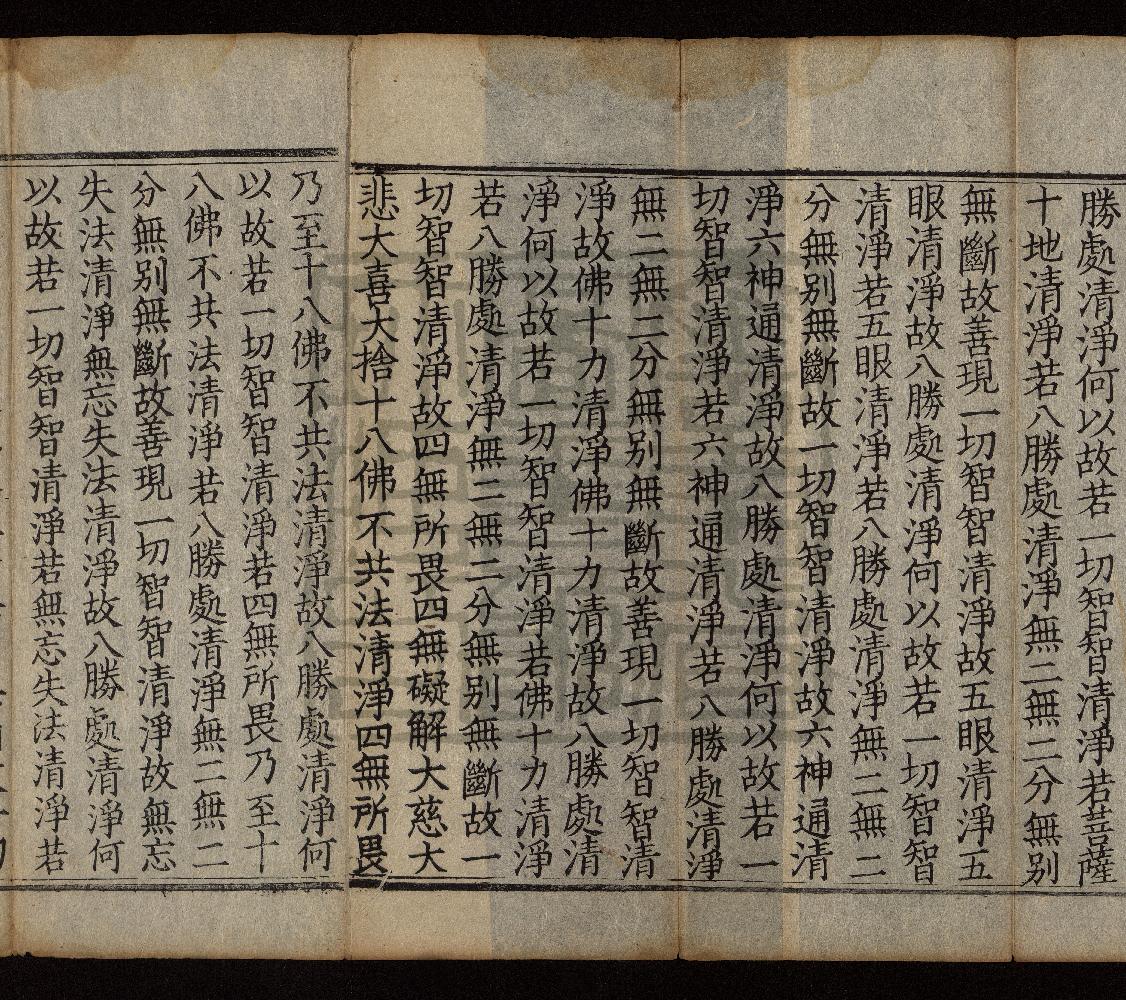 勝處清淨何以故若一切智智清淨若菩薩
十地清淨若八勝處清淨無二無二分無別
無斷故善現一切智智清淨故五眼清淨五
眼清淨故八勝處清淨何以故若一切智智
清淨若五眼清淨若八勝處清淨無二無二
分無別無斷故一切智智清淨故六神通清
淨六神通清淨故八勝處清淨何以故若一
切智智清淨若六神通清淨若八勝處清淨
無二無二分無別無斷故善現一切智智清
淨故佛十力清淨佛十力清淨故八勝處清
淨何以故若一切智智清淨若佛十力清淨
若八勝處清淨無二無二分無別無斷故一
切智智清淨故四無所畏四無礙解大慈大
悲大喜大捨十八佛不共法清淨四無所畏
乃至十八佛不共法清淨故八勝處清淨何
以故若一切智智清淨若四無所畏乃至十
八佛不共法清淨若八勝處清淨無二無二
分無別無斷故善現一切智智清淨故無忘
失法清淨無忘失法清淨故八勝處清淨何
以故若一切智智清淨若無忘失法清淨若